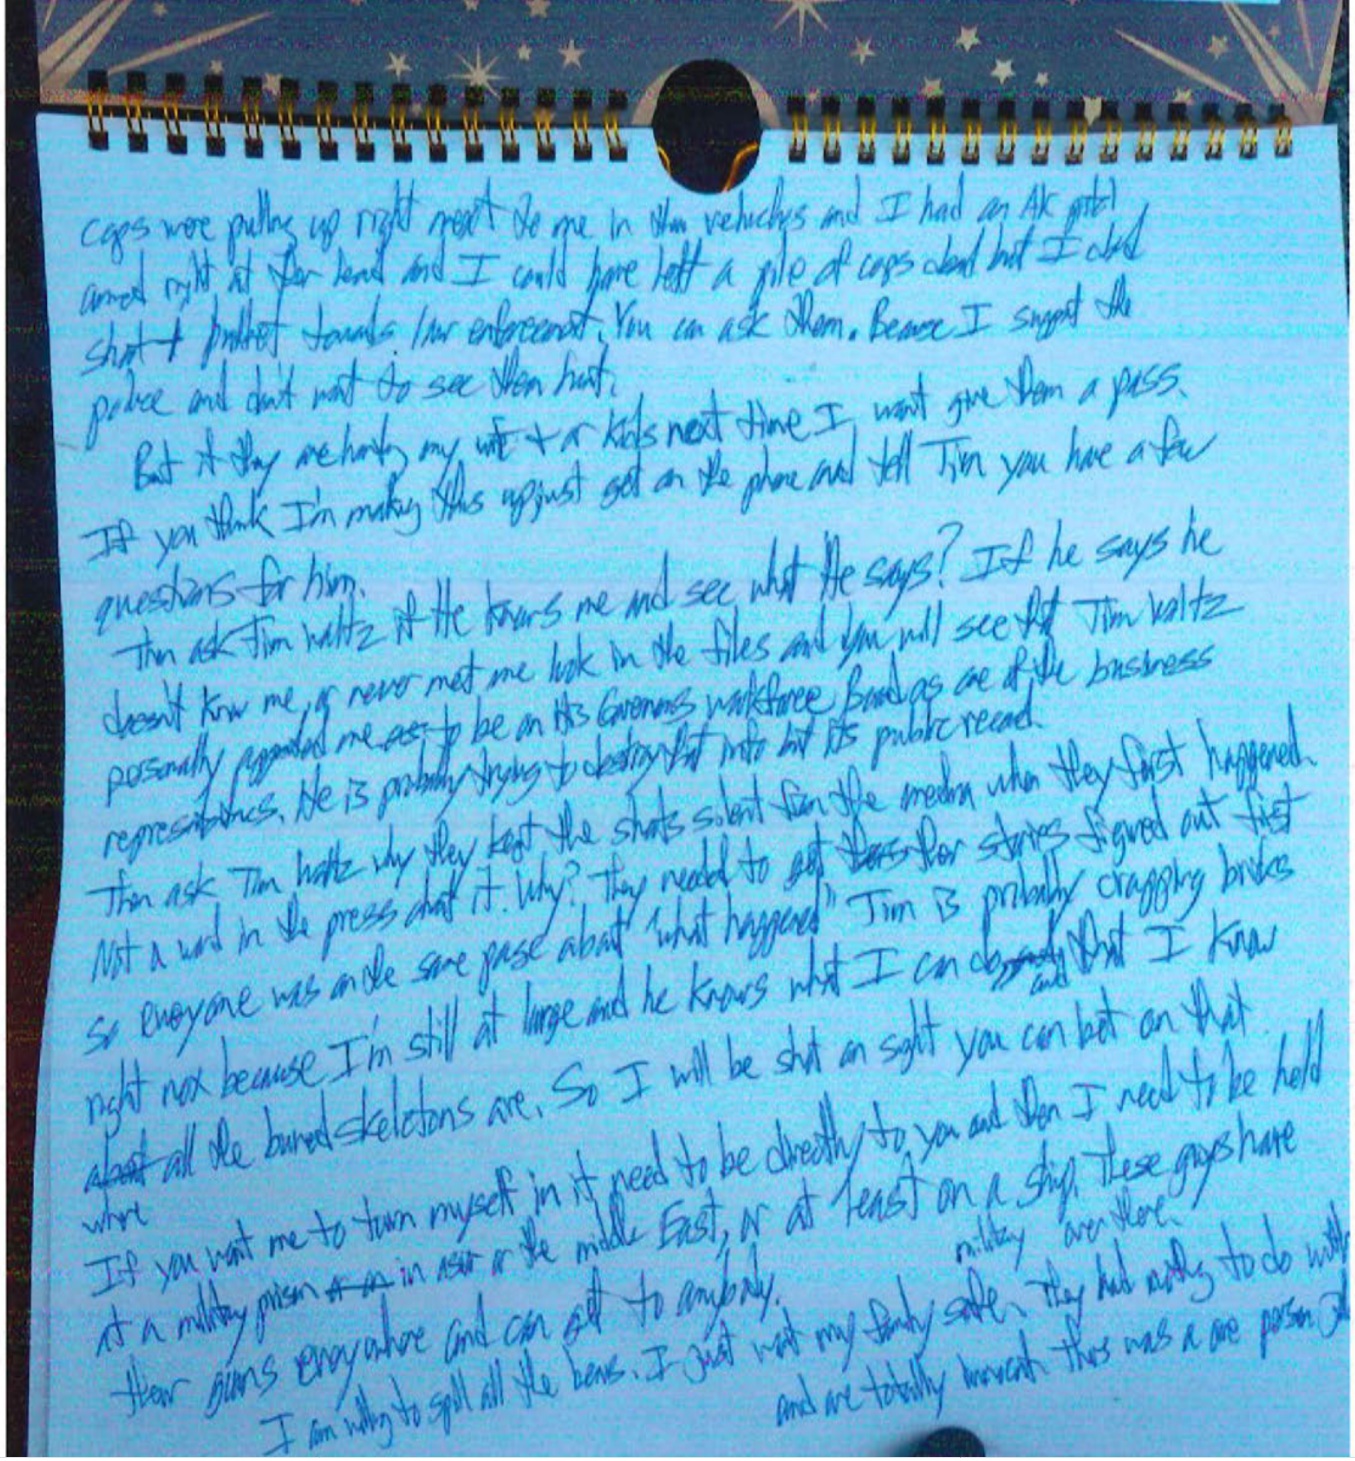 cops were pulling up right next to me in their vehicles and I had an AK pistol
aimed right at their head and I could have left a pile of cops dead but I didnt
shoot 1 bullet towards law enforcement. You can ask them. Because I support the
police and don't want to see them hurt.
But if they are hurting my wife + or kids next time I wont give them a pass.
If you think I'm making this up just get on the phone and tell Tim you have a few
questions for him.
Then ask Tim Waltz if He knows me and see what He says? If he says he
doesn't know me, or never met me look in the files and you will see that Tim Waltz
personally appointed me to be on His Governors workforce Board as one of the business
He is probably trying to destroy that info but its public record.
Then ask Tim Waltz why they kept the shots silent from the media when they first happened.
Not a word in the press about it. Why? They needed to get their stories figured out first
So everyone was on the same page about "what happened" Tim is probably cragging bricks
right nox because I'm still at large and he knows what I can do and that I know
all the buried skeletons are. So I will be shot on sight you can bet on that
where
If you want me to turn myself in it need to be directly to you and then I need to be held
at a military prison in or the middle East, or at least on a ship. These guys have
military over there.
their guns everywhere and can get to anybody.
I am willing to spill all the beans. I just want my family safe. They had nothing to do with
and are totally innocent this was a one person